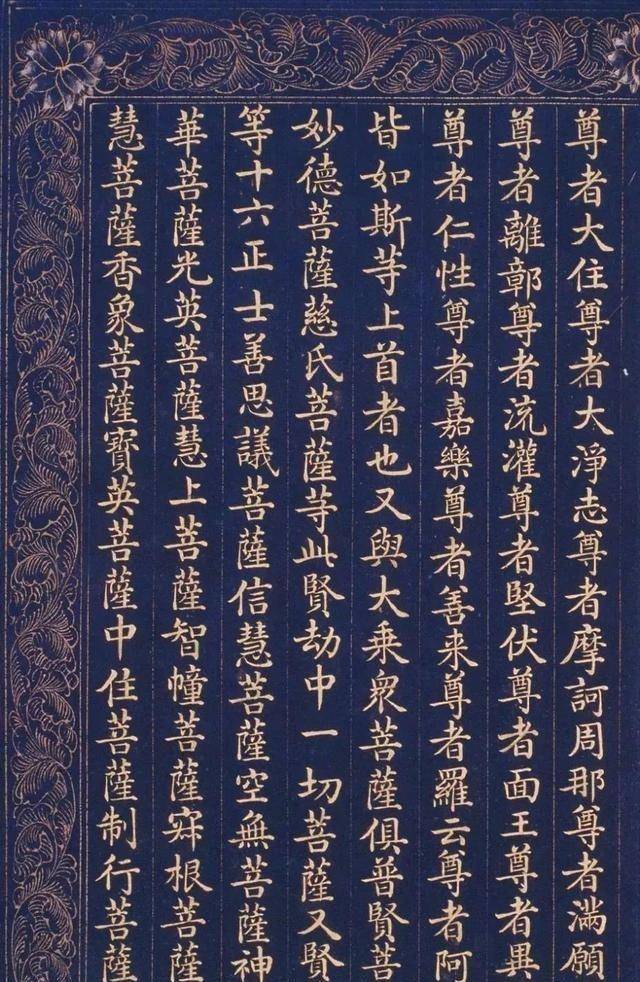 尊者大住尊者大淨志尊者摩訶周那尊者滿願
尊者離鄣尊者流灌尊者堅伏尊者面王尊者異
尊者仁性尊者嘉樂尊者善来尊者羅云尊者阿
皆如斯等上首者也又與大乘衆菩薩俱普賢菩
妙德菩薩慈氏菩薩等此賢劫中一切菩薩又賢
等十六正士善思議菩薩信慧菩薩空無菩薩神
華菩薩光英菩薩慧上菩薩智幢菩薩寂根菩薩
慧菩薩香象菩薩寶英菩薩中住菩薩制行菩薩